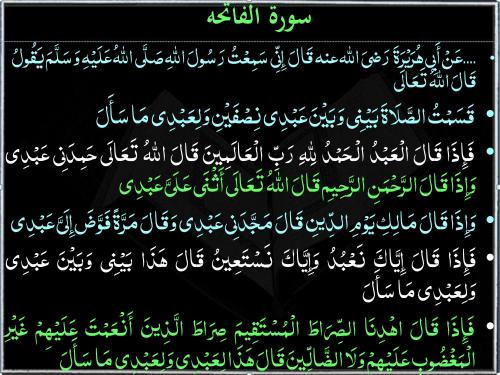 سورة الفاتحه
....عَنْ أَبِي هُرَيْرَةَ رَضِىَ الله عنه قَالَ إِنِّي سَمِعْتُ رَسُولَ اللهِ صَلَّى اللهُ عَلَيْهِ وَسَلَّمَ يَقُولُ
قَالَ اللهُ تَعَالَى
قَسَمْتُ الصَّلَاةَ بَيْنِى وَبَيْنَ عَبْدِى نِصْفَيْنِ وَلِعَبْدِى مَا سَأَلَ
فَإِذَا قَالَ الْعَبْدُ الْحَمْدُ لِلَّهِ رَبِّ الْعَالَمِينَ قَالَ اللهُ تَعَالَى حَمِدَنِى عَبْدِى
وَإِذَا قَالَ الرَّحْمَنِ الرَّحِيمِ قَالَ اللهُ تَعَالَى أَثْنَى عَلَىَّ عَبْدِى
وَإِذَا قَالَ مَالِكِ يَوْمِ الدِّينِ قَالَ مَجَّدَنِى عَبْدِى وَقَالَ مَرَّةً فَوَّضَ إِلَىَّ عَبْدِى
فَإِذَا قَالَ إِيَّاكَ نَعْبُدُ وَإِيَّاكَ نَسْتَعِينُ قَالَ هَذَا بَيْنِى وَبَيْنَ عَبْدِى
وَلِعَبْدِى مَا سَأَلَ
فَإِذَا قَالَ اهْدِنَا الصِّرَاطَ الْمُسْتَقِيمَ صِرَاطَ الَّذِينَ أَنْعَمْتَ عَلَيْهِمْ غَيْرِ
الْمَغْضُوبِ عَلَيْهِمْ وَلَا الضَّالِّينَ قَالَ هَذَا لِعَبْدِى وَلِعَبْدِى مَا سَأَلَ